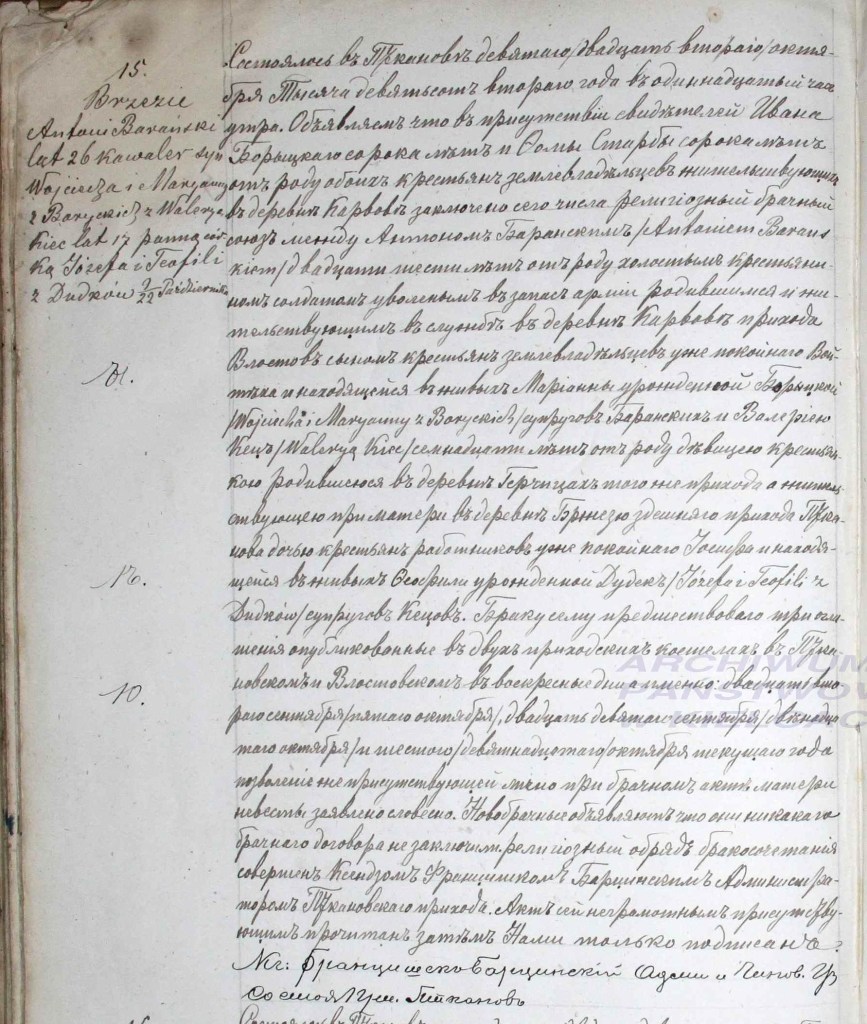 15.
Brzezie
Antoni Barański
lat 26 kawaler syn
Wojciecha i Maryanny
z Boryckich z Walerya
Kiec lat 17 panna cór
ka Józefa i Teofili
z Dudków 9/22 Październik
Состоялось въ Пѣкановѣ девятаго /двадцать втораго/ октя-
бря Тысяча девятьсотъ втораго года въ одиннадцатый часъ
утра. Объявляемъ что въ присутствіи свидѣтелей Ивана
Борыцкаго сорока лѣтъ и Ѳомы Старбы сорока лѣтъ
отъ роду обоихъ крестьянъ землевладѣльцевъ жительствующихъ
въ деревнѣ Карвовѣ заключенъ сего числа религіозный брачный
союзъ между Антономъ Баранскимъ /Antoniem Barans
kiem/ двадцати шести лѣтъ отъ роду холостымъ крестьяни-
номъ солдатомъ уволенымъ въ запасъ арміи родившимся и жи-
тельствующимъ въ службѣ въ деревнѣ Карвовѣ прихода
Влостовъ сыномъ крестьянъ землевладѣльцевъ уже покойнаго Вой-
тѣха и находящейся въ живыхъ Маріанны урожденной Борыцкой
/Wojciecha i Maryanny z Boryckich/ супруговъ Баранскихъ и Валеріею
Кецъ /Walerya Kiec/ семнадцати лѣтъ отъ роду дѣвицею крестьян-
кою родившеюся въ деревнѣ Герчицахъ того же прихода а житель
ствующею при матери въ деревнѣ Бржезю здешняго прихода Пѣка-
нова дочью крестьянъ работниковъ уже покойнаго Іосифа и находя-
щейся въ живыхъ Ѳеофили урожденной Дудекъ /Józefa i Teofili z
Dudków/ супруговъ Кецовъ. Браку сему предшествовало три огла-
шенія опубликованные въ двухъ приходскихъ костелахъ въ Пѣка-
новскомъ и Влостовскомъ въ воскресные дни а именно: двадцать вто-
раго сентября /пятаго октября/, двадцать девятаго сентября /двѣнадца
таго октября/ и шестого /девятнадцатаго/ октября текущаго года
позволеніе не присутствующей лично при брачномъ актѣ матери
невесты заявлено словесно. Новобрачные объявляютъ что они никакаго
брачнаго договора не заключили. религіозный обрядъ бракосочетанія
совершенъ Ксендзомъ Францишкомъ Барщинскимъ Администра-
торомъ Пѣкановскаго прихода. Актъ сей неграмотнымъ присутству-
ющимъ прочитанъ затѣмъ Нами только подписанъ
Кс: Францишекъ Барщинскій Адми и Чинов. Гр
Состоя Прих. Пѣкановъ
ARCHIWUM
PAŃSTWOWE